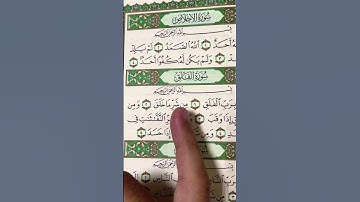 سُورَةُ الإِخْلَاصِ
بِسْمِ اللَّهِ الرَّحْمَٰنِ الرَّحِيمِ
أَحَدٌ ۝ اللَّهُ الصَّمَدُ ۝ لَمْ يَلِدْ
۝ وَلَمْ يَكُن لَّهُ كُفُوًا أَحَدٌ ۝
سُورَةُ الْفَلَقِ
بِسْمِ اللَّهِ الرَّحْمَٰنِ الرَّحِيمِ
بِرَبِّ الْفَلَقِ ۝ مِن شَرِّ مَا خَلَقَ ۝ وَمِن
إِذَا وَقَبَ ۝ النَّفَّاثَاتِ فِي
۝ وَمِن إِذَا حَسَدَ ۝
بِسْمِ اللَّهِ الرَّحْمَٰنِ الرَّحِيمِ
بِرَبِّ النَّاسِ ۝ النَّاسِ